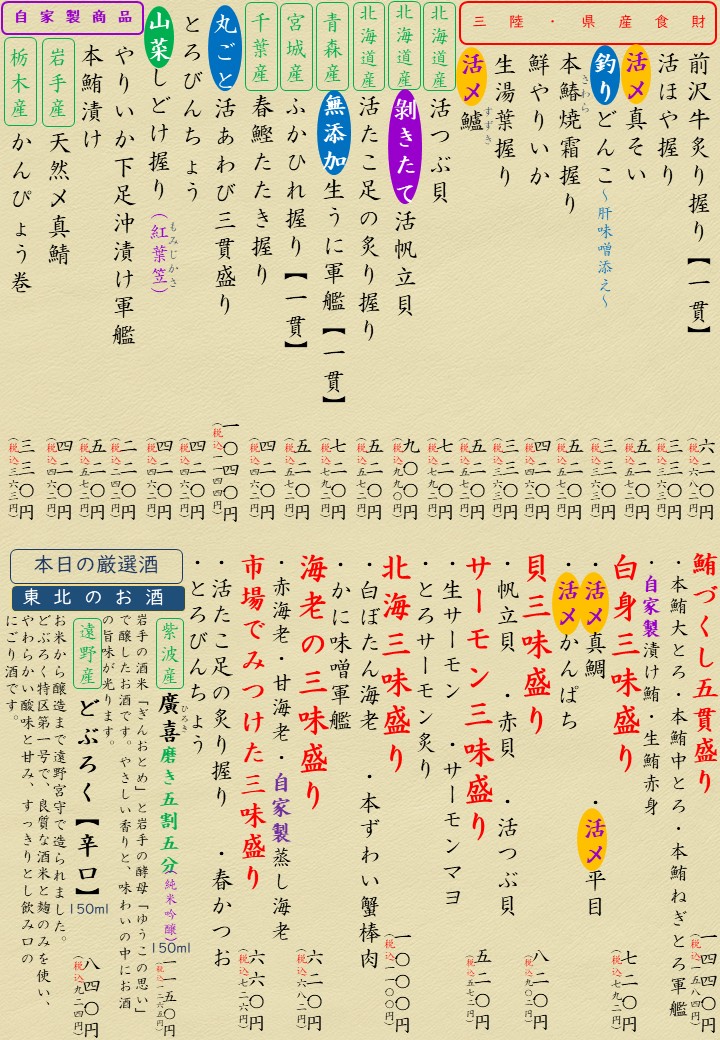 三陸・県産食財
前沢牛炙り握り【一貫】 六二〇円(税込六八二円)
活ほや握り 三三〇円(税込三六三円)
活〆真そい 五二〇円(税込五七二円)
釣りどんこ~肝味噌添え~ 三三〇円(税込三六三円)
本鰆焼霜握り 五二〇円(税込五七二円)
さわら
鮮やりいか 四二〇円(税込四六二円)
生湯葉握り 三三〇円(税込三六三円)
活〆鱸 五二〇円(税込五七二円)
すずき
北海道産 活つぶ貝 七二〇円(税込七九二円)
北海道産 剝きたて活帆立貝 九〇〇円(税込九九〇円)
北海道産 活たこ足の炙り握り 五二〇円(税込五七二円)
青森産 無添加生うに軍艦【一貫】 七二〇円(税込七九二円)
宮城産 ふかひれ握り【一貫】 五二〇円(税込五七二円)
千葉産 春鰹たたき握り 四二〇円(税込四六二円)
丸ごと活あわび三貫盛り 一〇四〇円(税込一一四四円)
とろびんちょう 四二〇円(税込四六二円)
山菜しどけ握り(紅葉笠) 四二〇円(税込四六二円)
もみじかさ
自家製商品
やりいか下足沖漬け軍艦 二二〇円(税込二四二円)
本鮪漬け 五二〇円(税込五七二円)
岩手産 天然〆真鯖 四二〇円(税込四六二円)
栃木産 かんぴょう巻 三三〇円(税込三六三円)
鮪づくし五貫盛り 一四四〇円(税込一五八四円)
・本鮪大とろ・本鮪中とろ・本鮪ねぎとろ軍艦
・自家製漬け鮪・生鮪赤身
白身三味盛り 七二〇円(税込七九二円)
・活〆真鯛 ・活〆平目
・活〆かんぱち
貝三味盛り 八二〇円(税込九〇二円)
・帆立貝 ・赤貝 ・活つぶ貝
サーモン三味盛り 五二〇円(税込五七二円)
・生サーモン ・サーモンマヨ
・とろサーモン炙り
北海三味盛り 一〇〇〇円(税込一一〇〇円)
・白ぼたん海老 ・本ずわい蟹棒肉
・かに味噌軍艦
海老の三味盛り 六二〇円(税込六八二円)
・赤海老・甘海老・自家製蒸し海老
市場でみつけた三味盛り 六六〇円(税込七二六円)
・活たこ足の炙り握り ・春かつお
・とろびんちょう
本日の厳選酒
東北のお酒
紫波産 廣喜磨き五割五分(純米吟醸)150ml 一一五〇円(税込一二六五円)
ひろき
岩手の酒米「ぎんおとめ」と岩手の酵母「ゆうこの思い」
で醸したお酒です。やさしい香りと、味わいの中にお酒
の旨味が光ります。
遠野産 どぶろく【辛口】150ml 八四〇円(税込九二四円)
お米から醸造まで遠野宮守で造られました。
どぶろく特区第一号で、良質な酒米と麹のみを使い、
やわらかい酸味と甘み、すっきりとし飲み口の
にごり酒です。